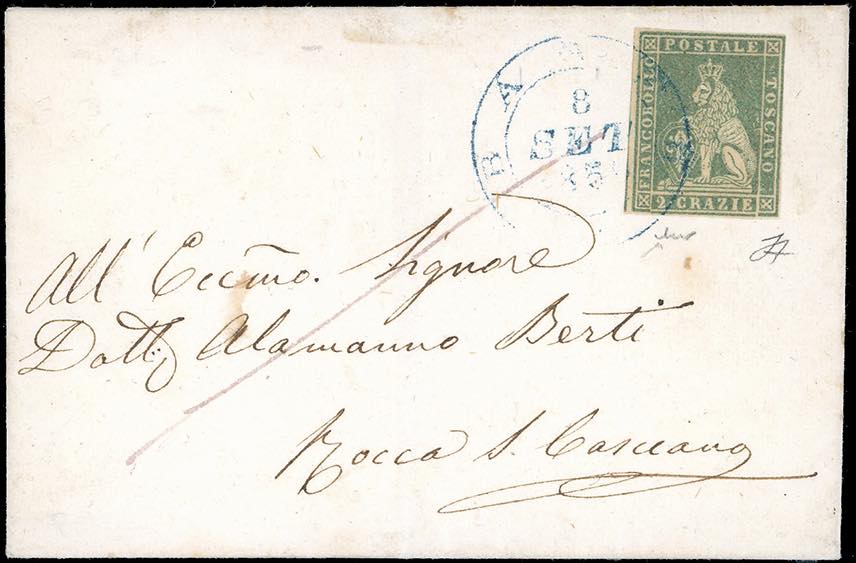 FRANCOBOLLO POSTALE TOSCANO
2 GRAZIE
8
SET
All' Eccm̃o. Signore
Dott. Alamanno Berti
Rocca S. Casciano